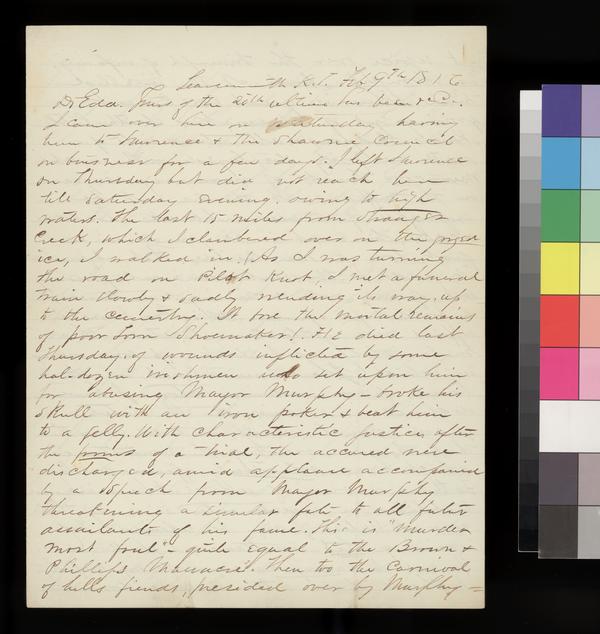 Leavenworth K.T. Feb 9th 186
Dr Eda. Yours of the 20th ultimo has been recd.
I came over here on Saturday, having
been to Lawrence & the Shawnee Council
on business for a few days. I left Lawrence
on Thursday but did not reach here
till Saturday evening. owing to high
waters. The last 15 miles from Stranger
Creek, which I clambered over on the gorged
ice, I walked in. As I was turning
the road on Pilot Knot, I met a funeral
train slowly & sadly wending its way, up
to the cemetery. It bore the mortal remains
of poor Tom Shoemaker! He died last
Thursday, of wounds inflicted by some
half-dozen Irishmen who set upon him
for abusing Mayor Murphy — broke his
skull with an iron poker & beat him
to a gelly. With characteristic justice, after
the forms of a trial, the accused were
discharged, amid applause accompanied
by a speech from Mayor Murphy
threatening a similar fate to all future
assailants of his fame. This is "murder
most foul" — quite equal to the Brown &
Phillips Massacre. Then too the carnival
of hells fiends, presided over by Murphy =